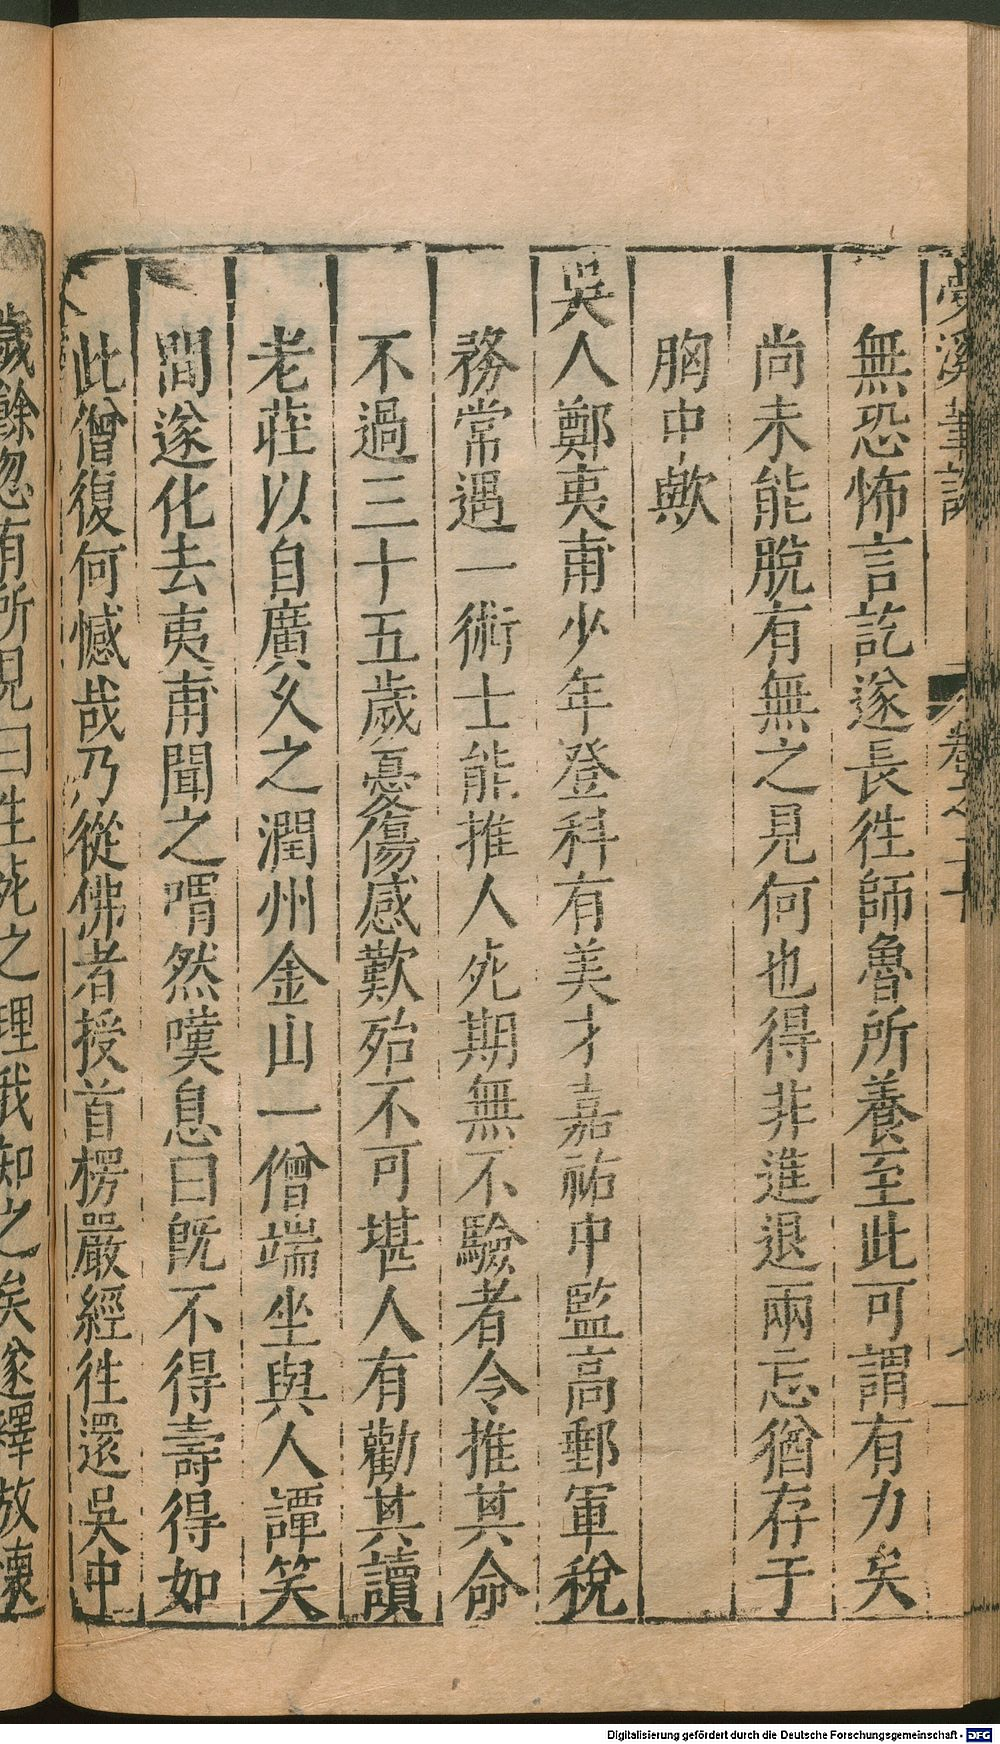 夢溪筆談
卷之二十
無恐怖言訖遂長徃師魯所養至此可謂有力矣
尚未能脫有無之見何也得非進退兩忘猶存于
胸中歟
吳人鄭夷甫少年登科有美才嘉祐中監高郵軍稅
務常遇一術士能推人死期無不驗者令推其命
不過三十五歲憂傷感歎殆不可堪人有勸其讀
老莊以自廣久之潤州金山一僧端坐與人譚笑
間遂化去夷甫聞之喟然嘆息曰旣不得壽得如
此僧復何憾哉乃從佛者授首楞嚴經徃還吳中
歲餘忽有所見曰生死之理我知之矣遂釋放懷
Digitalisierung gefördert durch die Deutsche Forschungsgemeinschaft - DFG